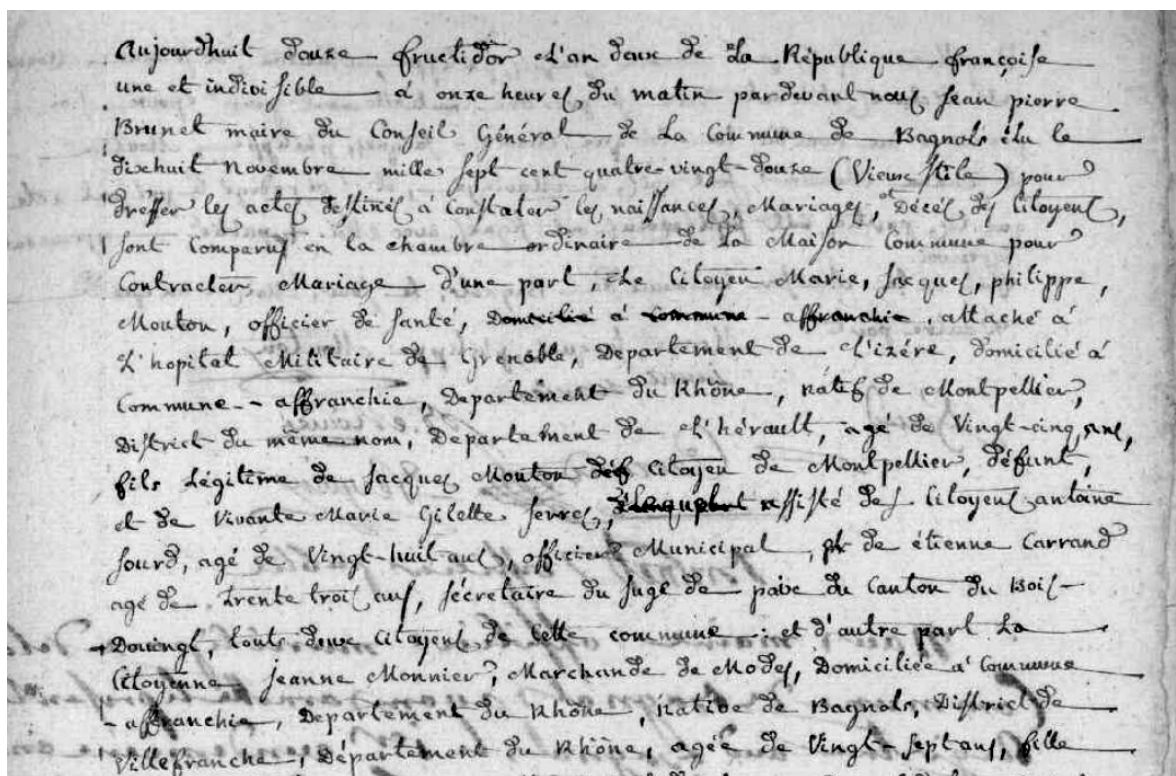 Aujourdhuit douze fructidor L'an deux de La République françoise
une et indivisible à onze heures du matin pardevant nous jean pierre
Brunet maire du Conseil Général de La Commune de Bagnols élu le
dixhuit Novembre mille sept cent quatre-vingt-douze (Vieux stile) pour
dresser les actes destinés à Constater les naissances, Mariages, et Décés des Citoyens,
sont Comparus en la chambre ordinaire de La Maison Commune pour
Contracter Mariage d'une part, Le Citoyen Marie, jacques, philippe,
Mouton, officier de santé, Domicilié à Commune - affranchie, attaché à
L'hopital Militaire de Grenoble, Departement de L'izére, domicilié à
Commune -- affranchie, Departement du Rhône, natif de Montpellier,
District du même nom, Departement de L'hérault, agé de Vingt-cinq ans,
fils Légitime de jacques Mouton déf Citoyen de Montpellier, défunt,
et de Vivante Marie Gilette serres, assisté des Citoyens antoine
sourd, agé de Vingt-huit ans, officier Municipal, et de étienne Carrand
agé de trente trois ans, sécretaire du juge de paix du Canton du Bois-
Douingt, touts deux Citoyens de cette commune ; et d'autre part La
Citoyenne jeanne Monnier, Marchande de Modes, Domiciliée à Commune
- affranchie, Departement du Rhône, Native de Bagnols, District de
Villefranche, Département du Rhône, agée de Vingt-sept ans, fille